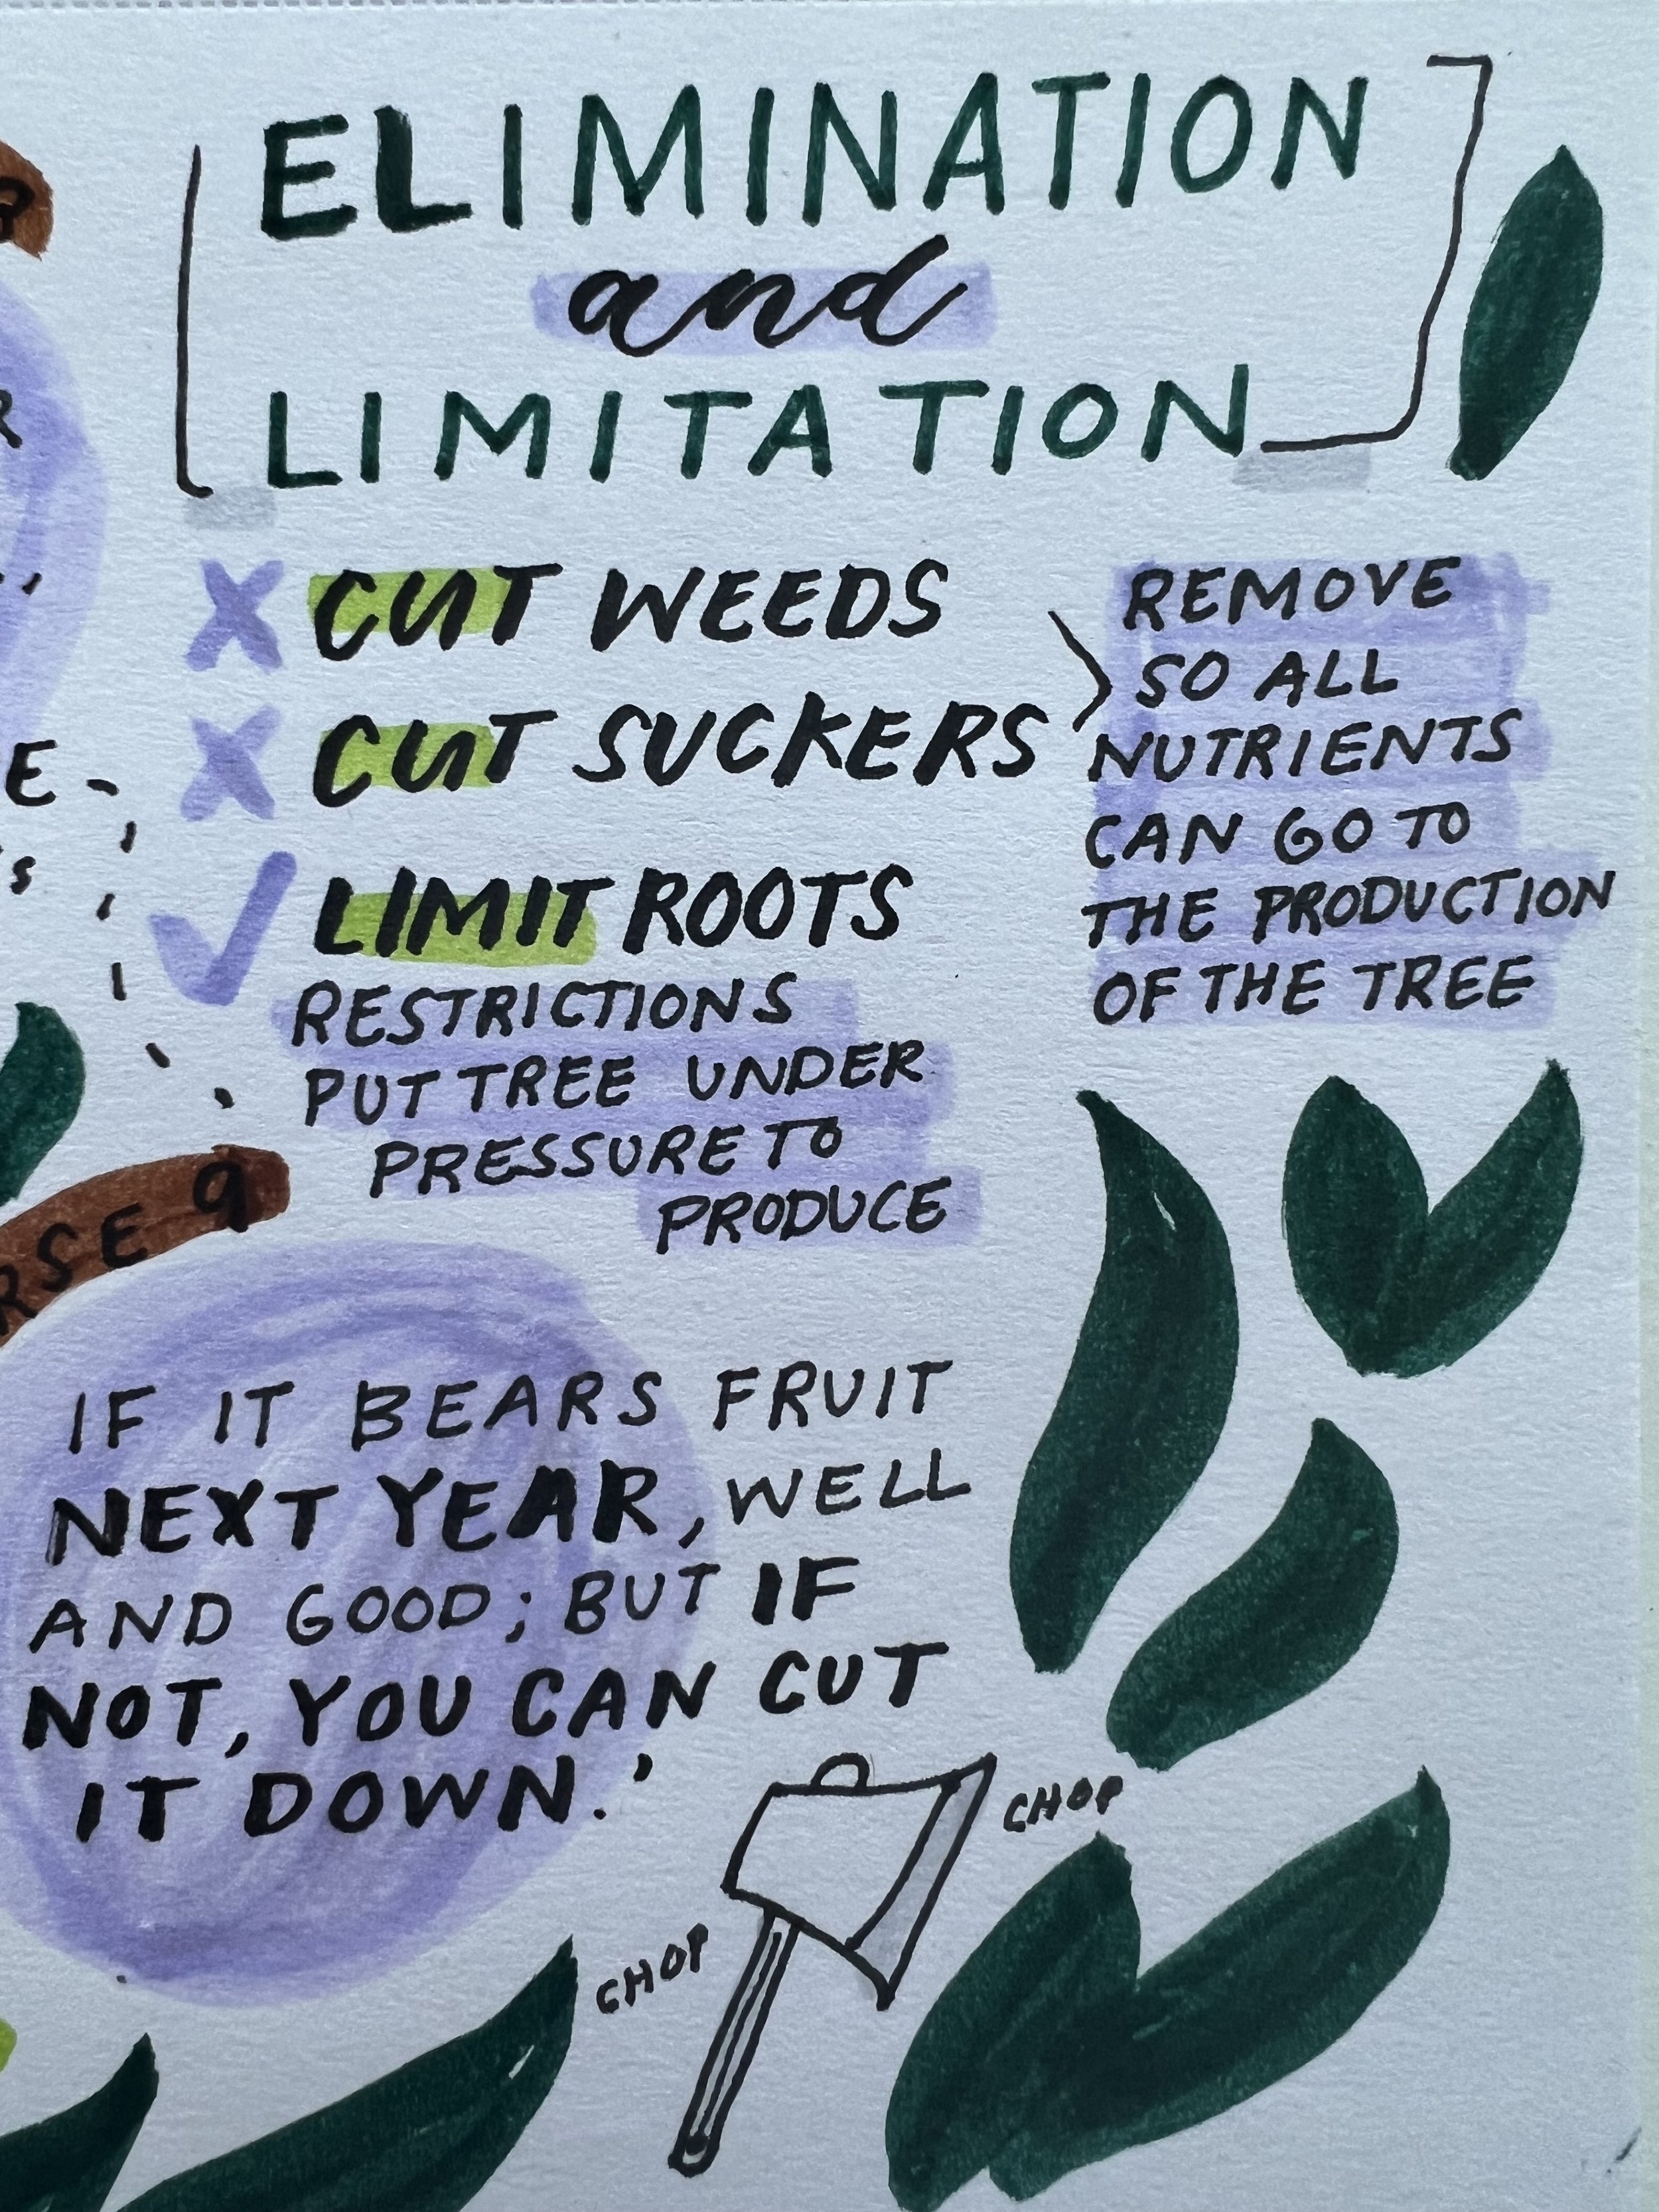 ELIMINATION
and
LIMITATION
CUT WEEDS
CUT SUCKERS
REMOVE
SO ALL
NUTRIENTS
CAN GO TO
THE PRODUCTION
OF THE TREE
LIMIT ROOTS
RESTRICTIONS
PUT TREE UNDER
PRESSURE TO
PRODUCE
RSE 9
IF IT BEARS FRUIT
NEXT YEAR, WELL
AND GOOD; BUT IF
NOT, YOU CAN CUT
IT DOWN.'
CHOP
CHOP